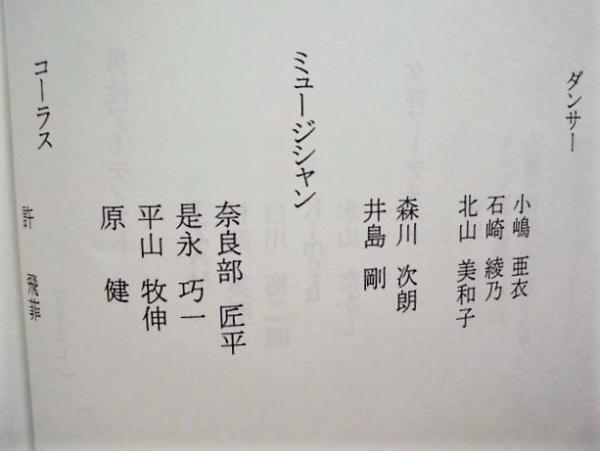 ダンサー
小嶋 亜衣
石崎 綾乃
北山 美和子
森川 次朗
井島 剛
ミュージシャン
奈良部 匠平
是永 巧一
平山 牧伸
原 健
コーラス
許 飛菲